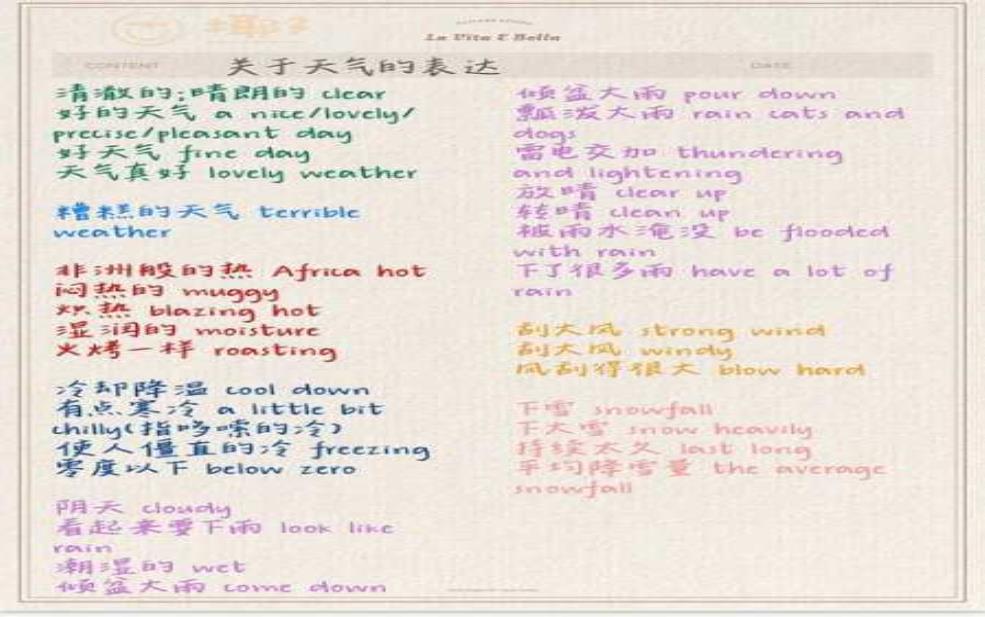 La Vita E Bella
CONTENT
关于天气的表达
DATE
清澈的;晴朗的 clear
好的天气 a nice/lovely/
precise/pleasant day
好天气 fine day
天气真好 lovely weather
糟糕的天气 terrible
weather
非洲般的热 Africa hot
闷热的 muggy
炽热 blazing hot
湿润的 moisture
火烤一样 roasting
冷却降温 cool down
有点寒冷 a little bit
chilly(指哆嗦的冷)
使人僵直的冷 freezing
零度以下 below zero
阴天 cloudy
看起来要下雨 look like
rain
潮湿的 wet
倾盆大雨 come down
倾盆大雨 pour down
瓢泼大雨 rain cats and
dogs
雷电交加 thundering
and lightening
放晴 clear up
转晴 clean up
被雨水淹没 be flooded
with rain
下了很多雨 have a lot of
rain
刮大风 strong wind
刮大风 windy
风刮得很大 blow hard
下雪 snowfall
下大雪 snow heavily
持续太久 last long
平均降雪量 the average
snowfall